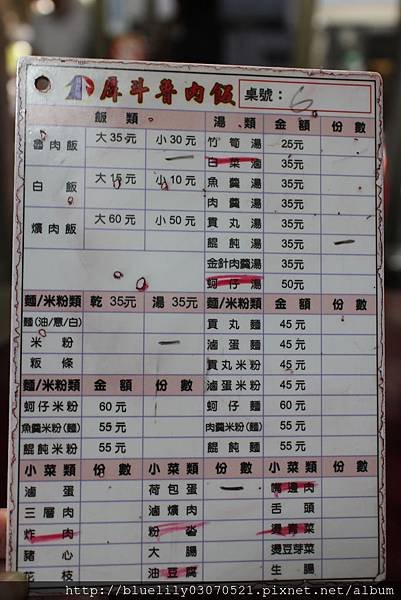 犀斗魯肉飯 桌號： 6
飯類 湯類 金額 份數
魯肉飯 大35元 小30元 竹筍湯 25元
白菜滷 35元
白飯 大15元 小10元 魚羹湯 35元
肉羹湯 35元
爌肉飯 大60元 小50元 貢丸湯 35元
餛飩湯 35元
金針肉羹湯 35元
蚵仔湯 50元
麵/米粉類 乾35元 湯35元 麵/米粉類 金額 份數
麵(油/意/白) 貢丸麵 45元
米粉 滷蛋麵 45元
粄條 貢丸米粉 45元
麵/米粉類 金額 份數 滷蛋米粉 45元
蚵仔米粉 60元 蚵仔麵 60元
魚羹米粉(麵) 55元 肉羹米粉(麵) 55元
餛飩米粉 55元 餛飩麵 55元
小菜類 份數 小菜類 份數 小菜類 份數
滷蛋 荷包蛋 嘴邊肉
三層肉 滷爌肉 舌頭
炸肉 粉肝 燙青菜
豬心 大腸 燙豆芽菜
花枝 油豆腐 生腸
http://bluelily03070521.pixnet.net/album